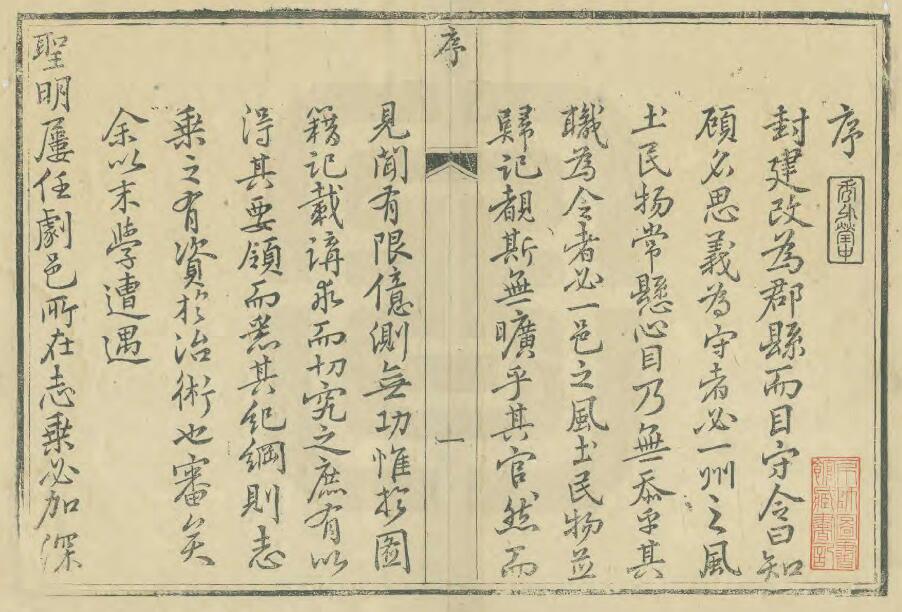 序
封建改為郡縣而目守令曰知
顧名思義為守者必一州之風
土民物常懸心目乃無忝乎其
職為令者必一邑之風土民物並
歸記覩斯無曠乎其官然而
序
一
見聞有限億測無功惟於圖
籍記載講求而切究之庶有以
得其要領而悉其紀綱則志
乘之有資於治術也審矣
余以末學遭遇
聖明屢任劇邑所在志乘必加深